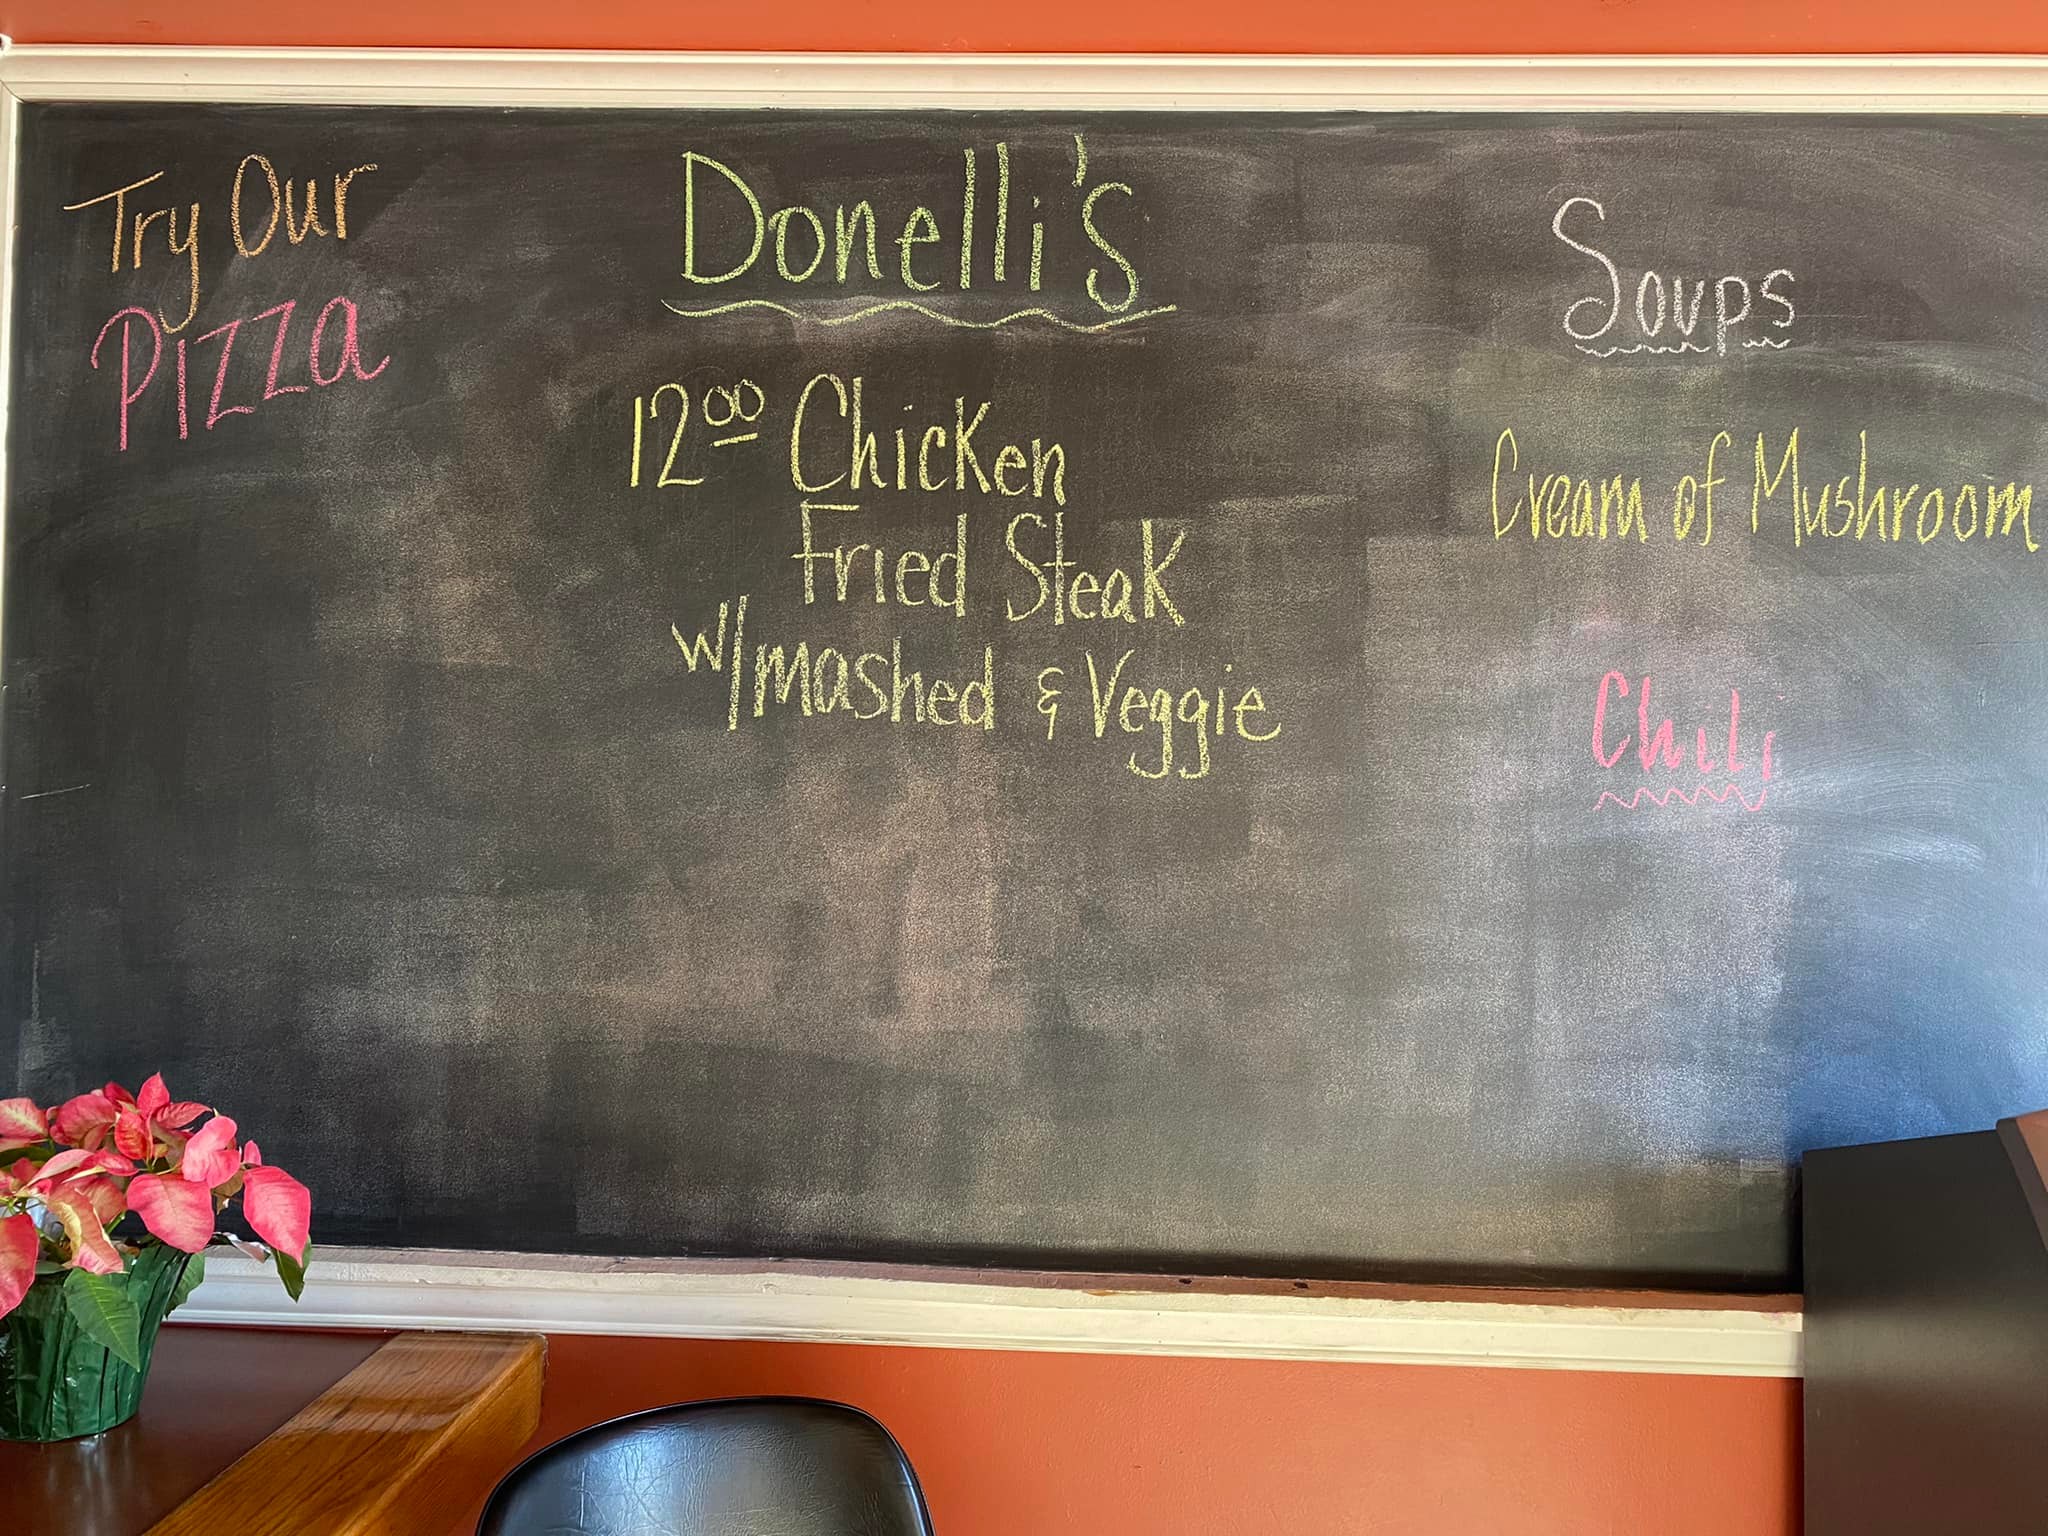 Try Our
Pizza
Donelli's
12⁰⁰ Chicken
Fried Steak
w/mashed & Veggie
Soups
Cream of Mushroom
Chili